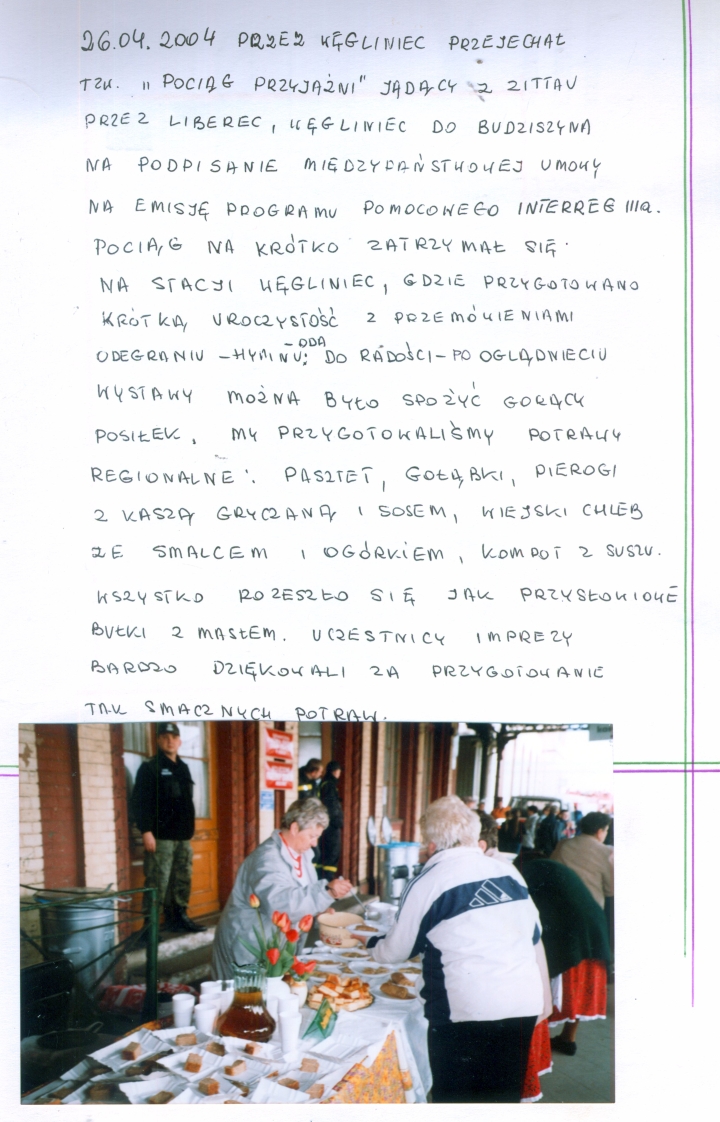 26.04.2004 PRZEZ WĘGLINIEC PRZEJECHAŁ
TZW. „POCIĄG PRZYJAŹNI" JĄDĄCY Z ZITTAU
PRZEZ LIBEREC, WĘGLINIEC DO BUDZISZYNA
NA PODPISANIE MIĘDZYPAŃSTWOWEJ UMOWY
NA EMISJĘ PROGRAMU POMOCOWEGO INTERREG IIIa.
POCIĄG NA KRÓTKO ZATRZYMAŁ SIĘ
NA STACJI WĘGLINIEC, GDZIE PRZYGOTOWANO
KRÓTKĄ UROCZYSTOŚĆ Z PRZEMÓWIENIAMI
ODEGRANIU – HYMNU: – ODA DO RADOŚCI – PO OGLĄDNIECIU
WYSTAWY MOŻNA BYŁO SPOŻYĆ GORĄCY
POSIŁEK. MY PRZYGOTOWALIŚMY POTRAWY
REGIONALNE: PASZTET, GOŁĄBKI, PIEROGI
Z KASZĄ GRYCZANĄ I SOSEM, WIEJSKI CHLEB
ZE SMALCEM I OGÓRKIEM, KOMPOT Z SUSZU.
WSZYSTKO ROZESZŁO SIĘ JAK PRZYSŁOWIOWE
BUŁKI Z MASŁEM. UCZESTNICY IMPREZY
BARDZO DZIĘKOWALI ZA PRZYGOTOWANIE
TAK SMACZNYCH POTRAW.